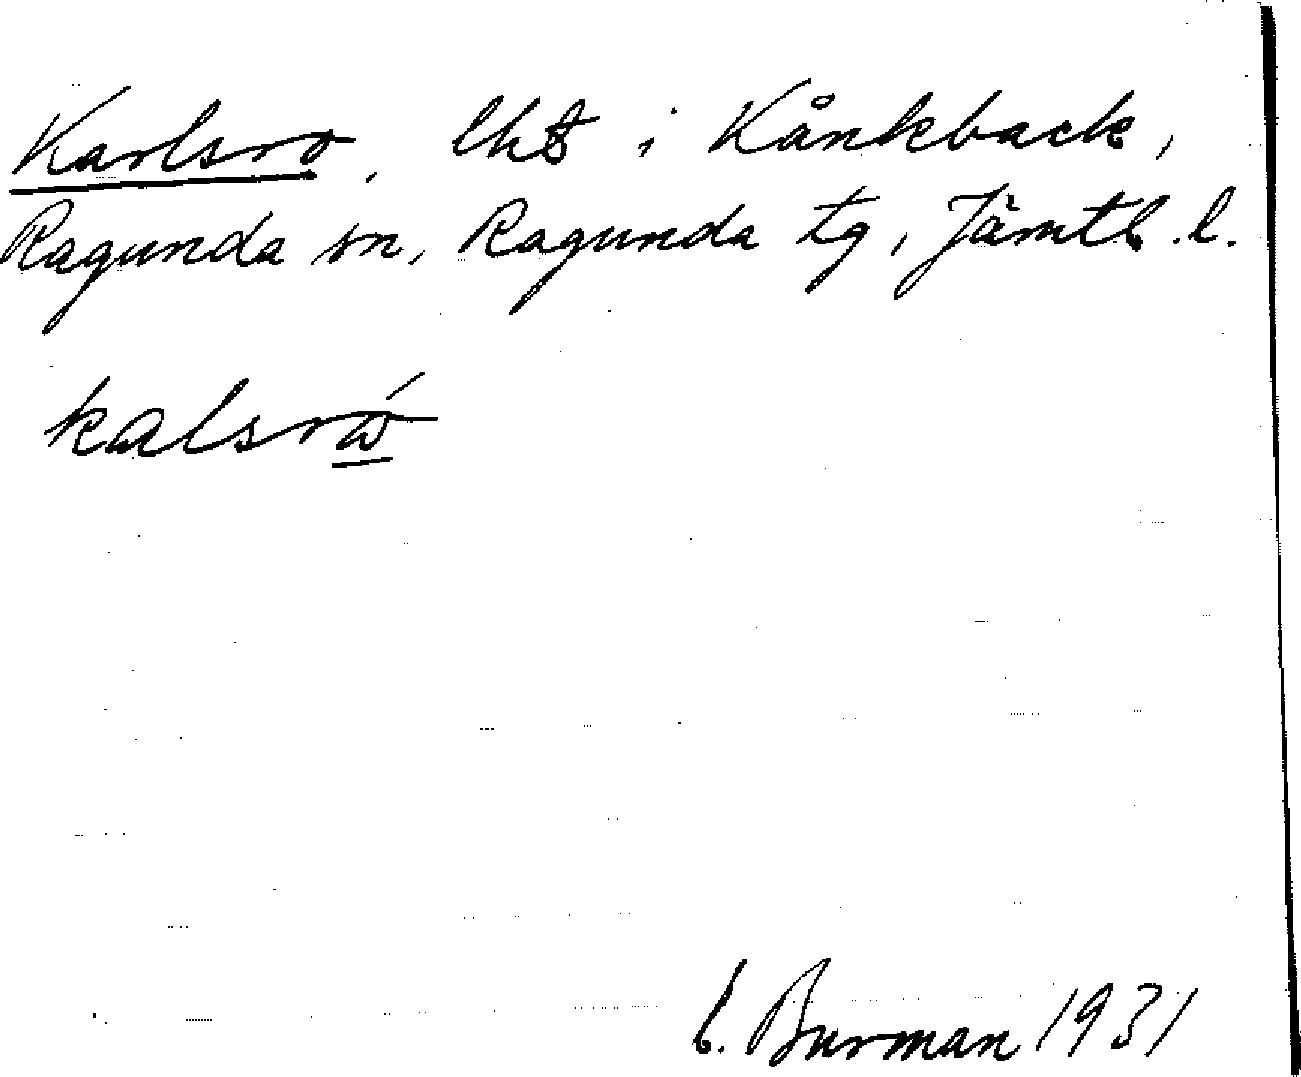 Karlsro, lht i Kånkback,
Ragunda sn, Ragunda tg, Jämtl. l.
kalsrώ
C. Burman 1931